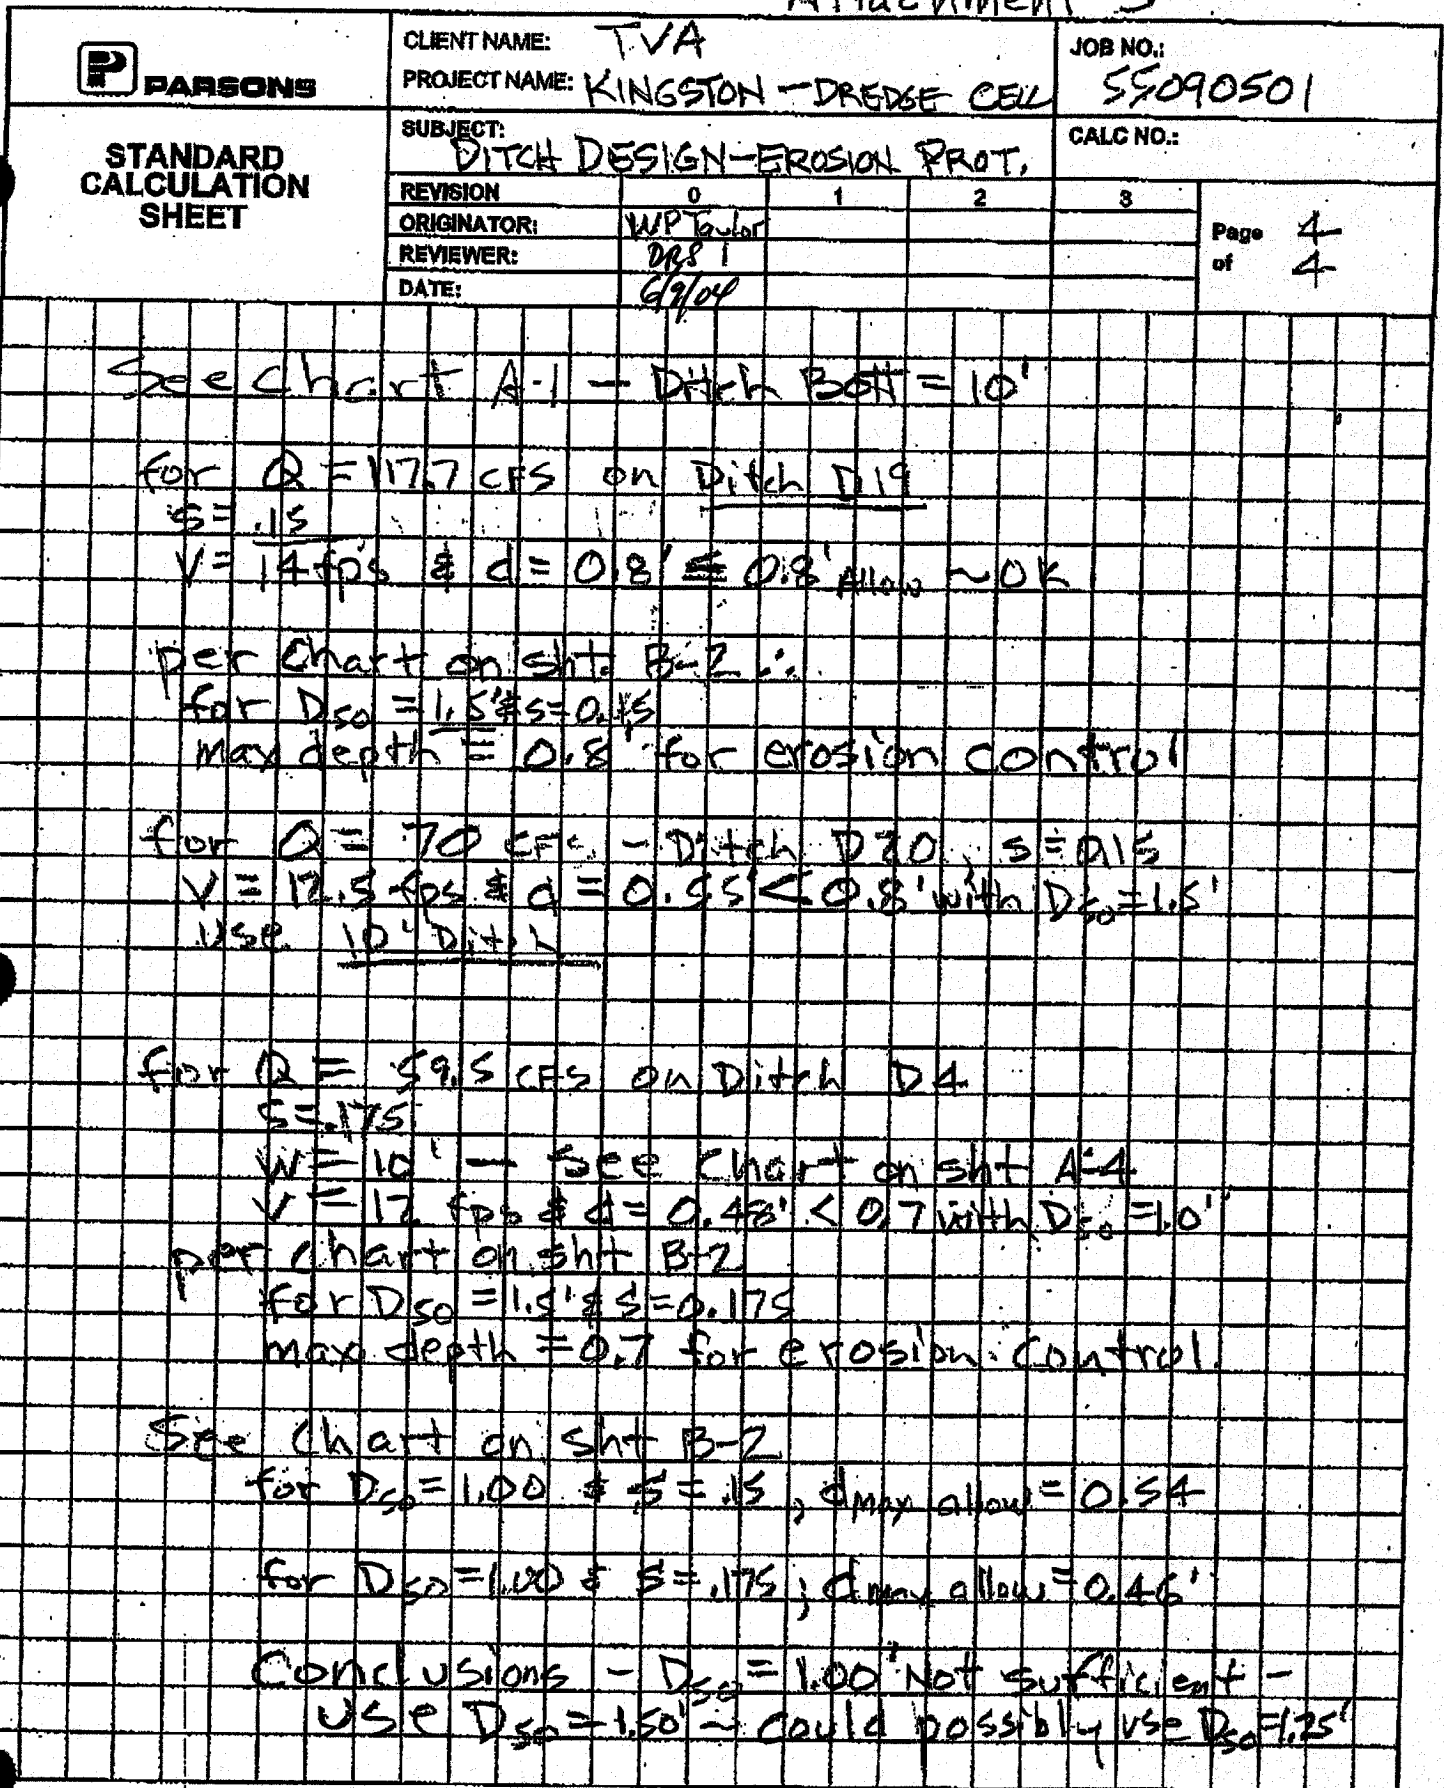 Attachment 3
PARSONS
STANDARD
CALCULATION
SHEET
CLIENT NAME: TVA
PROJECT NAME: KINGSTON - DREDGE CELL
JOB NO.:
55090501
SUBJECT:
DITCH DESIGN - EROSION PROT.
CALC NO.:
REVISION 0 1 2 3
ORIGINATOR: WP Taylor
REVIEWER: DRS
DATE: 6/9/04
Page 4
of 4
See Chart A-1 - Ditch Bott = 10'
for Q = 117.7 CFS on Ditch D19
S = .15
V = 14 fps & d = 0.8' ≤ 0.8' Allow ~ OK
per Chart on sht. B-2 ∴
for D50 = 1.5' & s = 0.15
max depth = 0.8' for erosion control
for Q = 70 CFS - Ditch D20, s = 0.15
V = 12.5 fps & d = 0.55' < 0.8' with D50 = 1.5'
Use 10' Ditch
for Q = 59.5 CFS on Ditch D4
S = .175
W = 10' - See Chart on sht A-4
V = 12 fps & d = 0.48' < 0.7 with D50 = 1.0'
per Chart on sht B-2
for D50 = 1.5' & S = 0.175
max depth = 0.7 for erosion control.
See Chart on sht B-2
for D50 = 1.00 & S = .15, dmax allow = 0.54
for D50 = 1.00 & S = .175; dmax allow = 0.46'
Conclusions - D50 = 1.00' Not sufficient -
Use D50 = 1.50' ~ Could possibly use D50 = 1.25'